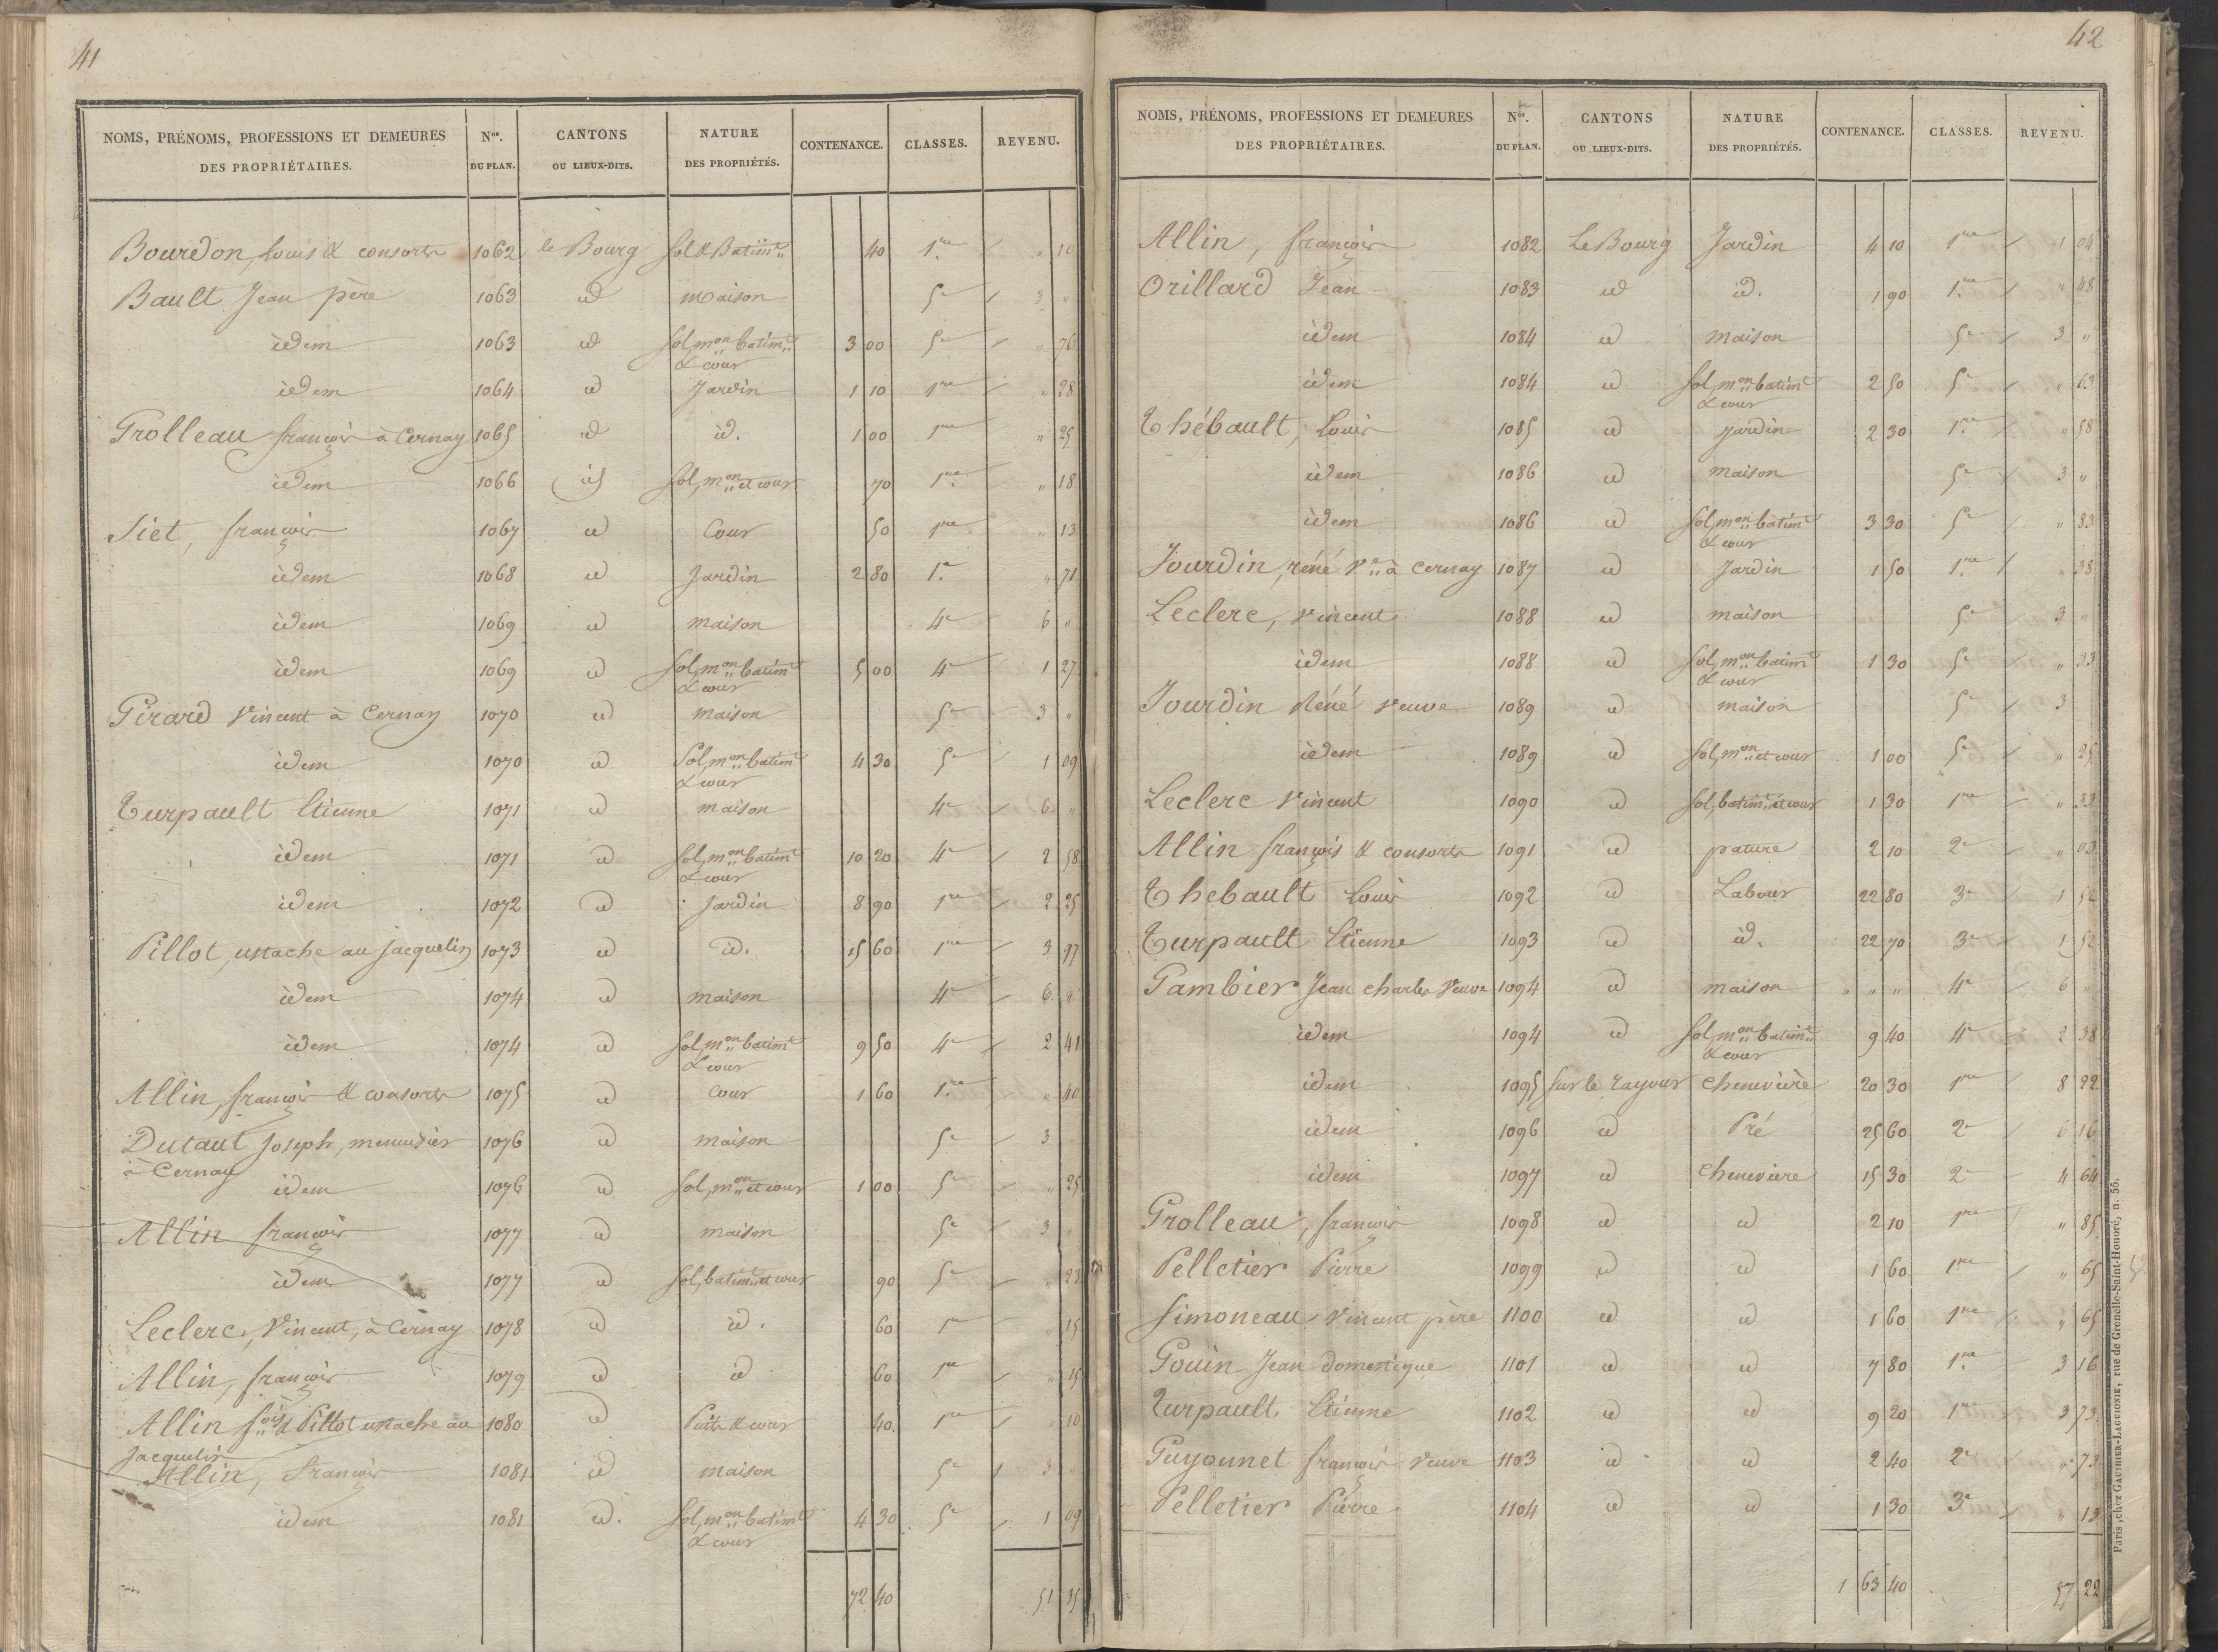 41
NOMS, PRÉNOMS, PROFESSIONS ET DEMEURES DES PROPRIÉTAIRES. Nos. DU PLAN. CANTONS OU LIEUX-DITS. NATURE DES PROPRIÉTÉS. CONTENANCE. CLASSES. REVENU.
Bourdon, Louis & consorts 1062 le Bourg Sol & Batimt 40 1re " 10
Bault Jean père 1063 id maison 5e 3 "
idem 1063 id Sol, mon batimt & cour 3 00 5e " 76
idem 1064 id Jardin 1 10 1re " 28
Grolleau françois à Cernay 1065 id id. 1 00 1re " 25
idem 1066 id Sol, mon et cour 70 1re " 18
Siet, françois 1067 id Cour 50 1re " 13
idem 1068 id Jardin 2 80 1re " 71
idem 1069 id maison 4e 6 "
idem 1069 id Sol, mon batimt & cour 5 00 4e 1 27
Girard Vincent à Cernay 1070 id maison 5e 3 "
idem 1070 id Sol, mon batimt & cour 4 30 5e 1 09
Turpault Etienne 1071 id maison 4e 6 "
idem 1071 id Sol, mon batimt & cour 10 20 4e 2 58
idem 1072 id Jardin 8 90 1re 2 25
Pillot, ustache au jacquelin 1073 id id. 15 60 1re 3 97
idem 1074 id maison 4e 6 "
idem 1074 id Sol, mon batimt & cour 9 50 4e 2 41
Allin, françois & consorts 1075 id Cour 1 60 1re " 40
Dutaut Joseph, menuisier à Cernay 1076 id maison 5e 3
idem 1076 id Sol, mon et cour 1 00 5e " 25
Allin françois 1077 id maison 5e 3 "
idem 1077 id Sol, batimt et cour 90 5e " 23
Leclerc, Vincent, à Cernay 1078 id id. 60 1re " 15
Allin, françois 1079 id id 60 1re " 15
Allin fois & Pillot ustache au Jacquelin 1080 id Puits & cour 40 1re " 10
Allin, françois 1081 id maison 5e 3 "
idem 1081 id. Sol, mon batimt & cour 4 30 5e 1 09
72 40 51 35
42
NOMS, PRÉNOMS, PROFESSIONS ET DEMEURES DES PROPRIÉTAIRES. Nos. DU PLAN. CANTONS OU LIEUX-DITS. NATURE DES PROPRIÉTÉS. CONTENANCE. CLASSES. REVENU.
Allin, françois 1082 Le Bourg Jardin 4 10 1re 1 04
Orillard Jean 1083 id id. 1 90 1re " 48
idem 1084 id maison 5e 3 "
idem 1084 id Sol, mon batimt & cour 2 50 5e " 63
Thébault, Louis 1085 id Jardin 2 30 1re " 58
idem 1086 id maison 5e 3 "
idem 1086 id Sol, mon batimt & cour 3 30 5e " 83
Jourdin, réné Ve à Cernay 1087 id Jardin 1 50 1re " 38
Leclerc, Vincent 1088 id maison 5e 3 "
idem 1088 id Sol, mon batimt & cour 1 30 5e " 33
Jourdin Réné Veuve 1089 id maison 5e 3
idem 1089 id Sol, mon et cour 1 00 5e " 25
Leclerc Vincent 1090 id Sol, batimt et cour 1 30 1re " 33
Allin françois & consorts 1091 id pature 2 10 2e " 03
Thebault Louis 1092 id Labour 22 80 3e 1 52
Turpault Etienne 1093 id id. 22 70 3e 1 52
Gambier Jean charles Veuve 1094 id maison " " " 4e 6 "
idem 1094 id Sol, mon batimt & cour 9 40 4e 2 38
idem 1095 Sur le rayour Chenevière 20 30 1re 8 22
idem 1096 id Pré 25 60 2e 6 16
idem 1097 id Cheneviere 15 30 2e 4 64
Grolleau, françois 1098 id id 2 10 1re " 85
Pelletier Pierre 1099 id id 1 60 1re " 65
Simoneau Vincent père 1100 id id 1 60 1re " 65
Gouin Jean domenique 1101 id id 7 80 1re 3 16
Turpault Etienne 1102 id id 9 20 1re 3 73
Guyonnet françois Veuve 1103 id id 2 40 2e " 73
Pelletier Pierre 1104 id id 1 30 3e " 13
1 63 40 57 22
Paris, chez GAUTHIER-LAGUIONIE, rue de Grenelle-Saint-Honoré, n. 55.